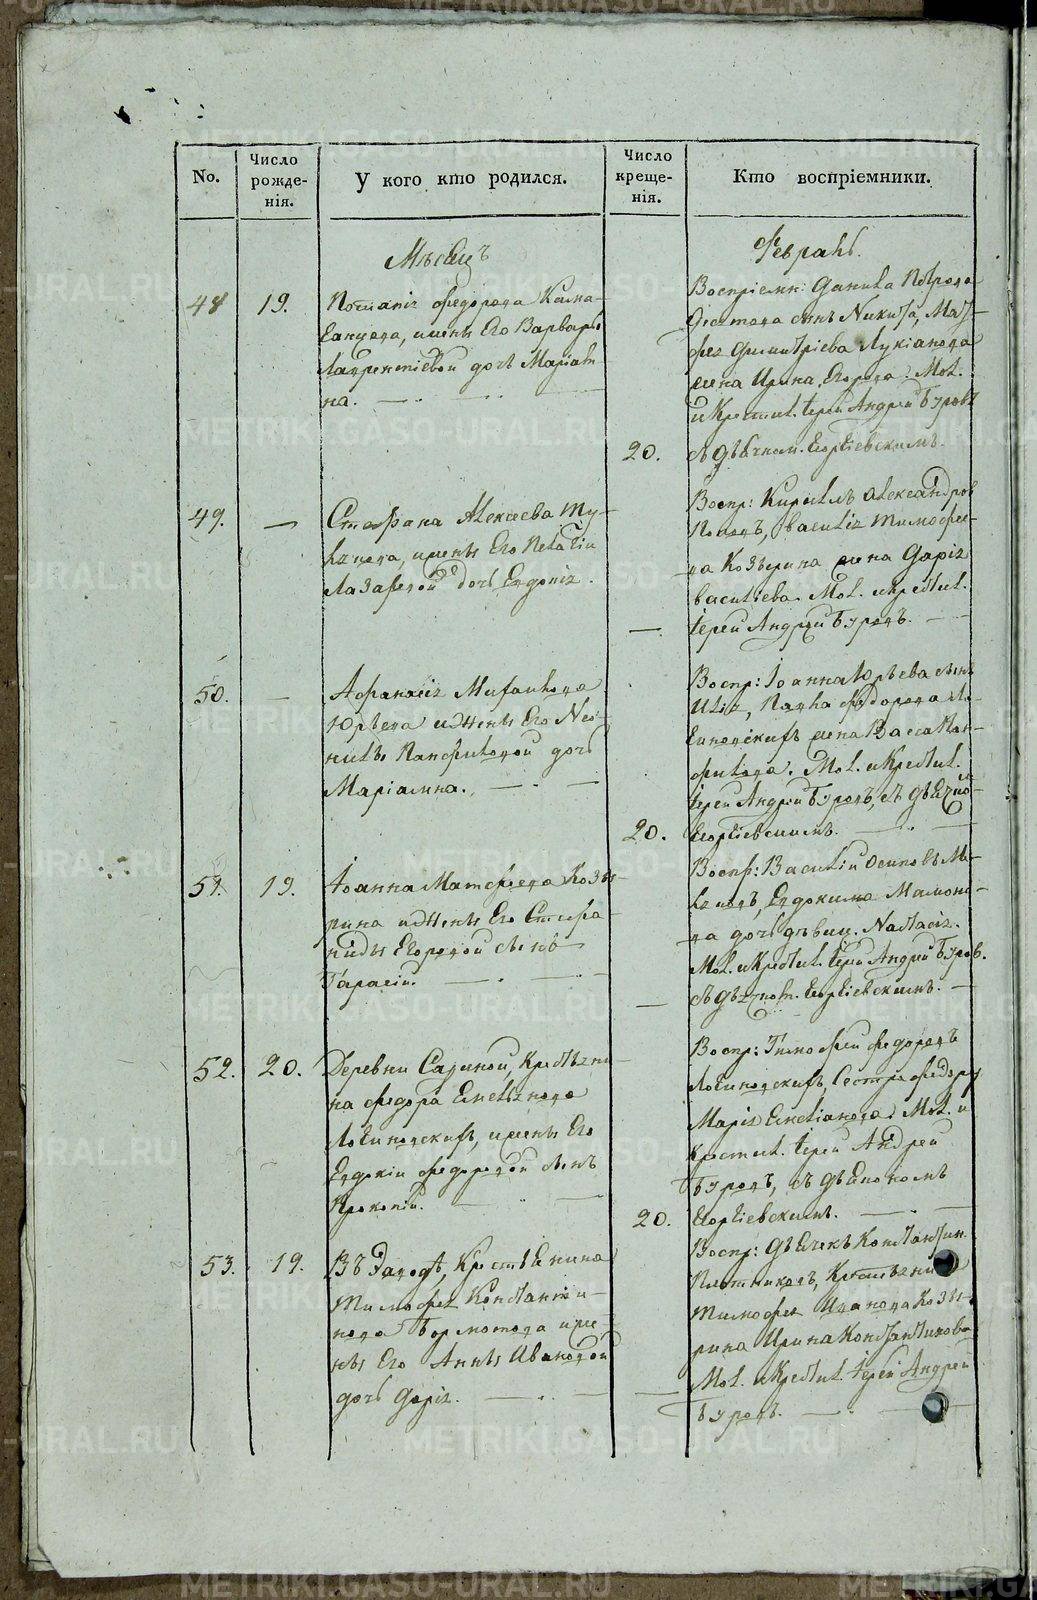 No.
Число рожде-
нія.
У кого кто родился.
Число креще-
нія.
Кто воспріемники.
Мѣсяцъ
Февраль.
48
19.
Потапія Федорова Кала-
жены Его Варвары
Лаврентіевой дочь Маріам-
на.
20.
Воспріемн: Данила Петрова
сынъ Никита, Мат-
фея Димитріева Лукіанова
жена Ирина Егорова. Мол.
и Крестил. Іерей Андрей Буровъ
съ дьячкам. Георгіевскимъ.
49.
—
Стефана Алексеева Ту-
жены Его Пелагіи
Лазаревой дочь Евдокія.
—
Воспр: Кирилъ Александров
Поповъ, Василія Тимофее-
ва Козырина жена Дарія
Василіева. Мол. и крестил.
Іерей Андрей Буровъ.
50.
—
Афанасія Михайлова
Юрьева и жены Его Нео-
нилы Панфиловой дочь
Маріамна.
20.
Воспр: Іоанна Юрьева сынъ
Илія, Павла Федорова Ло-
гиновскихъ жена Васса Пан-
филова. Мол. и Крестил.
Іерей Андрей Буровъ, съ дьячко-
Георгіевскимъ.
51.
19.
Іоанна Матфеева Козы-
рина и жены Его Стефа-
ниды Егоровой сынъ
Герасій.
—
Воспр: Василій Осиповъ
Евдокима Мамон-
ва дочь дѣвиц. Настасія.
Мол. и Крестил. Іерей Андрей Буров.
съ дьячком. Георгіевскимъ.
52.
20.
Деревни Савиной, Крестьяни-
на Федора Емеліанова
Логиновскихъ, жены Его
Евдокіи Федоровой сынъ
Прокопій.
20.
Воспр: Тимофей Федоровъ
Логиновскихъ, Сестра Федору
Марія Емеліанова. Мол. и
крестил. Іерей Андрей
Буровъ, съ дьякономъ
Георгіевскимъ.
53.
19.
ВЪ Заводѣ, Крестьянина
Тимофея Константи-
нова Бормотова жены
Его Анны Ивановой
дочь Дарія.
—
Воспр: дьячекъ Константин
Плотниковъ, Крестьянина
Тимофея Иванова Козы-
рина Ирина Константинова
Мол. и Крестил. Іерей Андрей
Буровъ.
METRIKI.GASO-URAL.RU